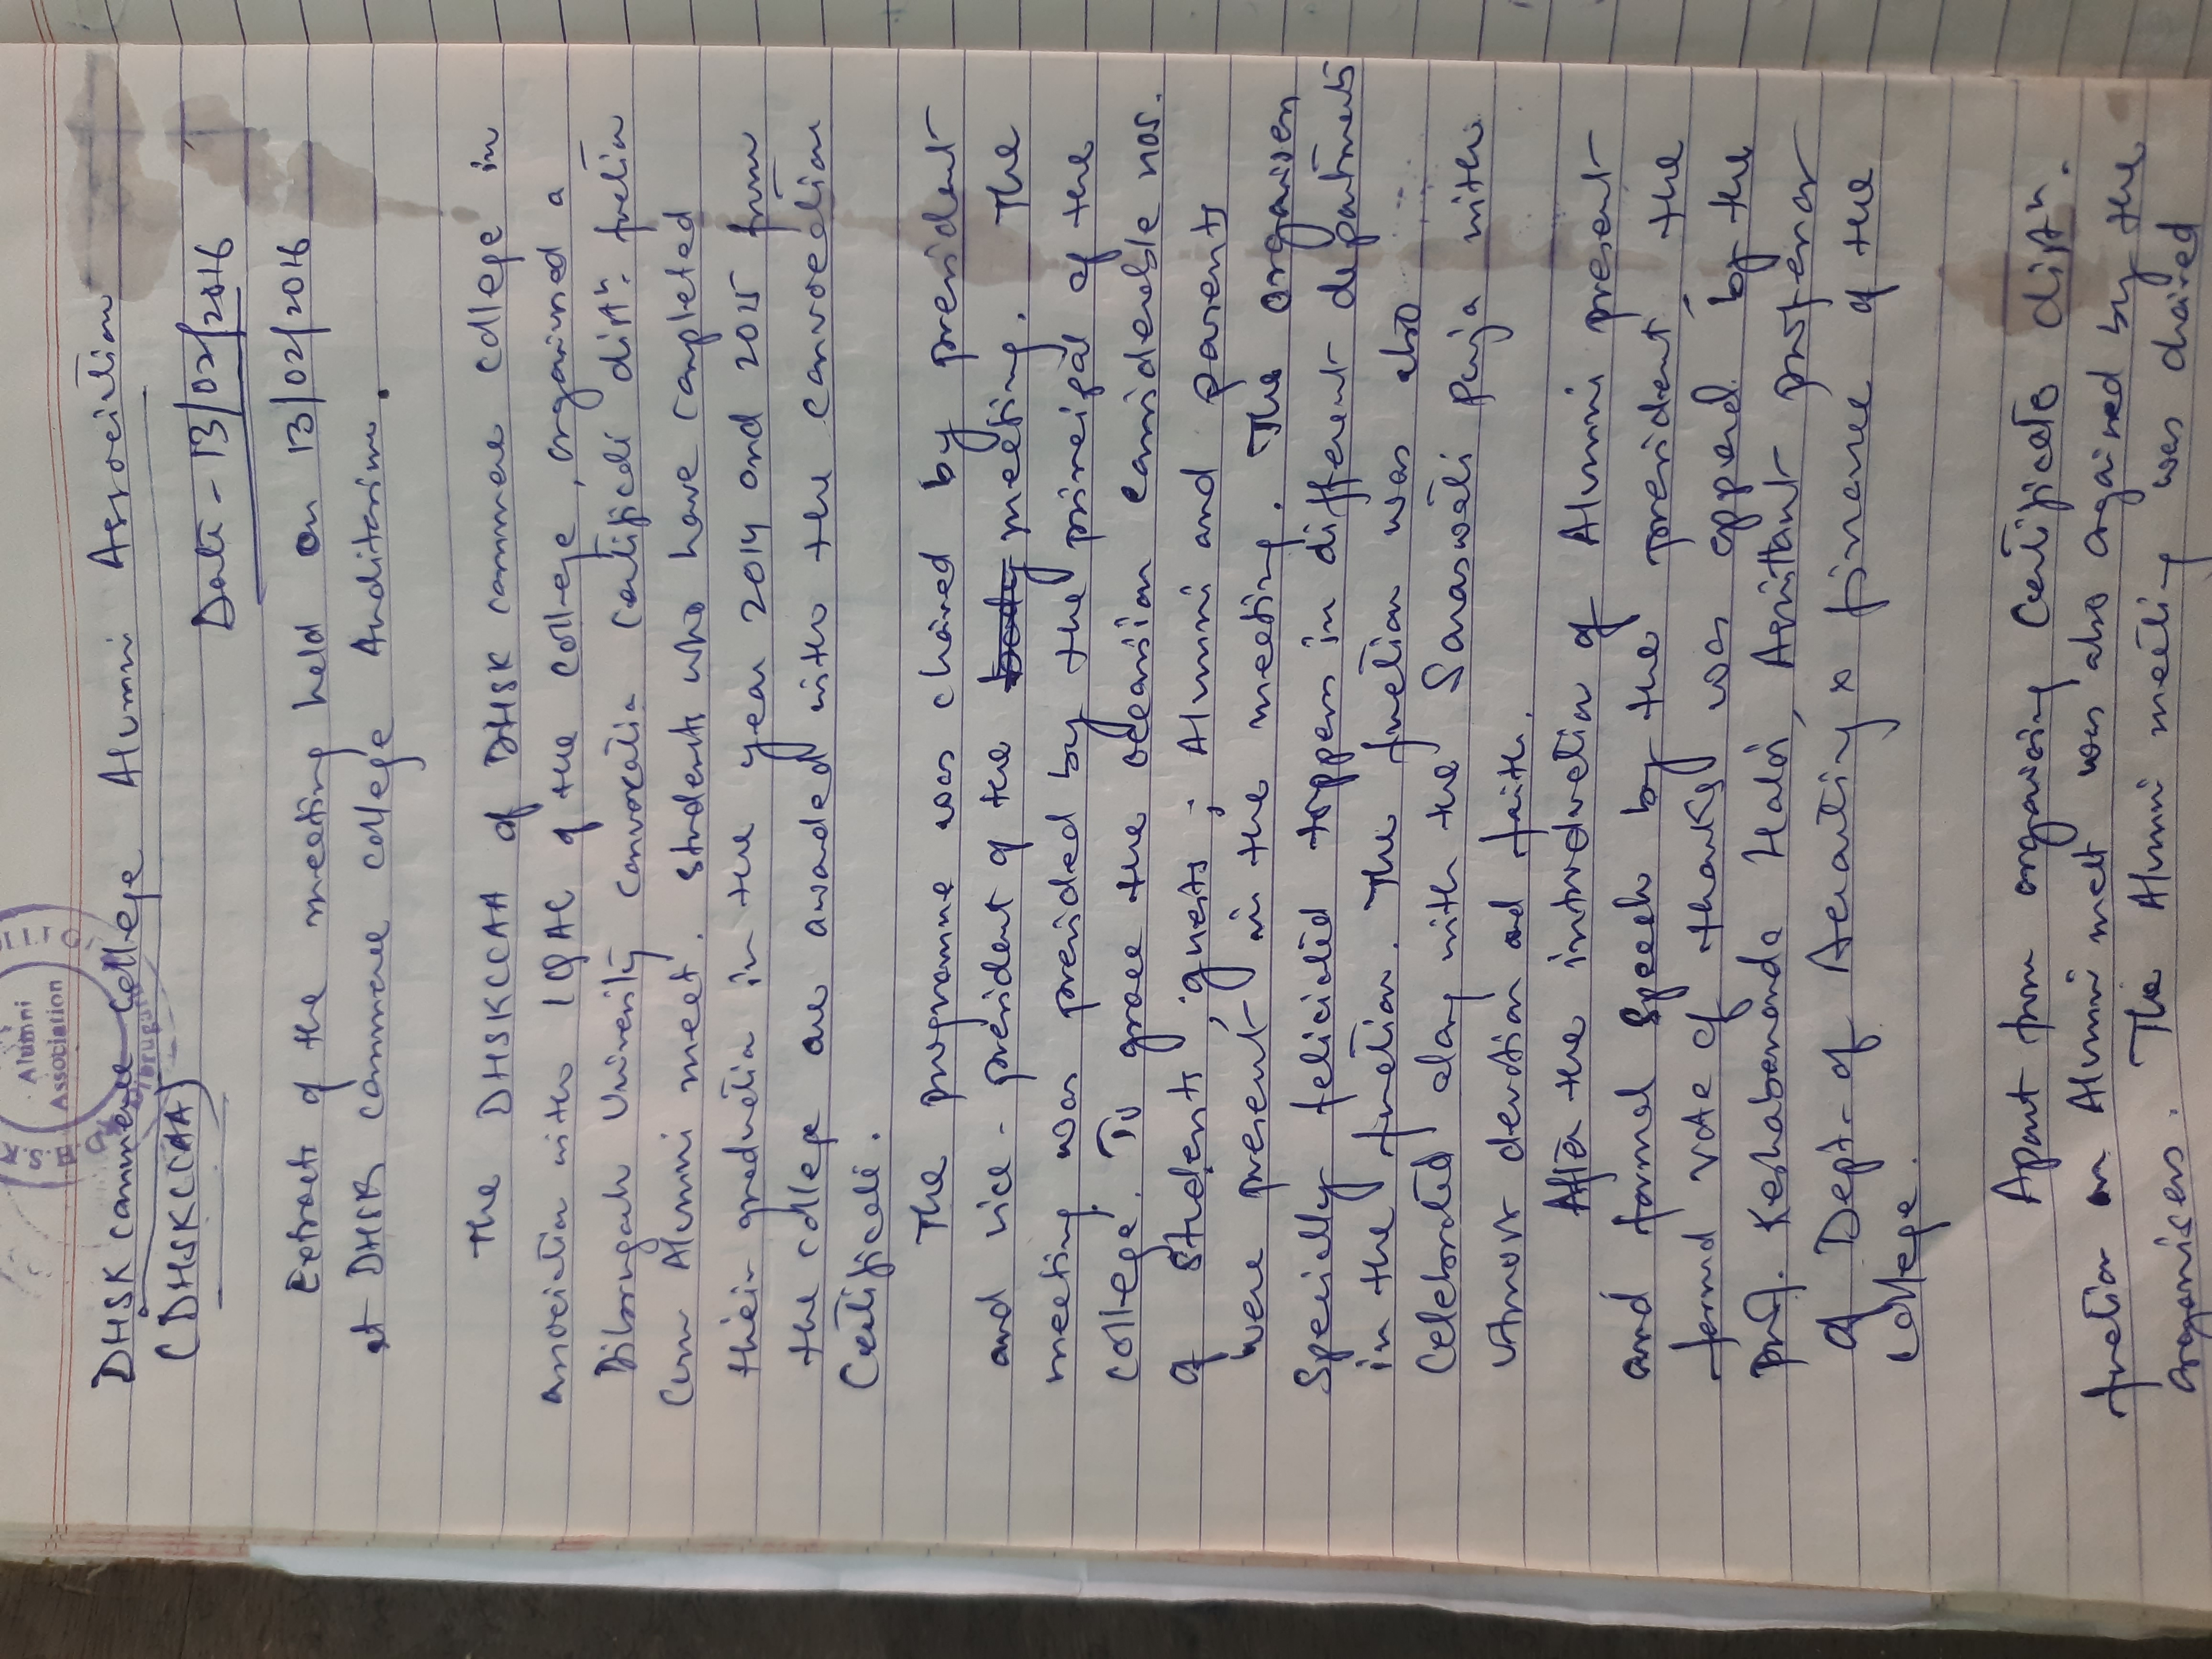 DHSK commerce college Alumni Association
(DHSKCCAA)
Alumni
Association
Date - 13/02/2016
Extract of the meeting held on 13/02/2016
at DHSK commerce college Auditorium.
The DHSKCCAA of DHSK commerce college in
association with IQAC of the college, organised a
Dibrugarh University convocation certificate distn. function
cum Alumni meet. Students who have completed
their graduation in the year 2014 and 2015 from
the college are awarded with the convocation
Certificate.
The programme was chaired by president
and vice-president of the meeting. The
meeting was presided by the principal of the
college. To grace the occasion considerable nos.
of students, guests, Alumni and parents
were present in the meeting. The organisers
specially felicited toppers in different departments
in the function. The function was also
celebrated along with the Saraswati Puja with
utmost devotion and faith.
After the introduction of Alumni present
and formal speech by the president the
formal vote of thanks was offered by the
prof. Keshabananda Haloi, Assistant professor
of Dept. of Accounting & finance of the
college.
Apart from organising certificate distn.
function an Alumni meet was also organised by the
organisers. The Alumni meeting was chaired